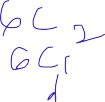 6C2
6C1
d